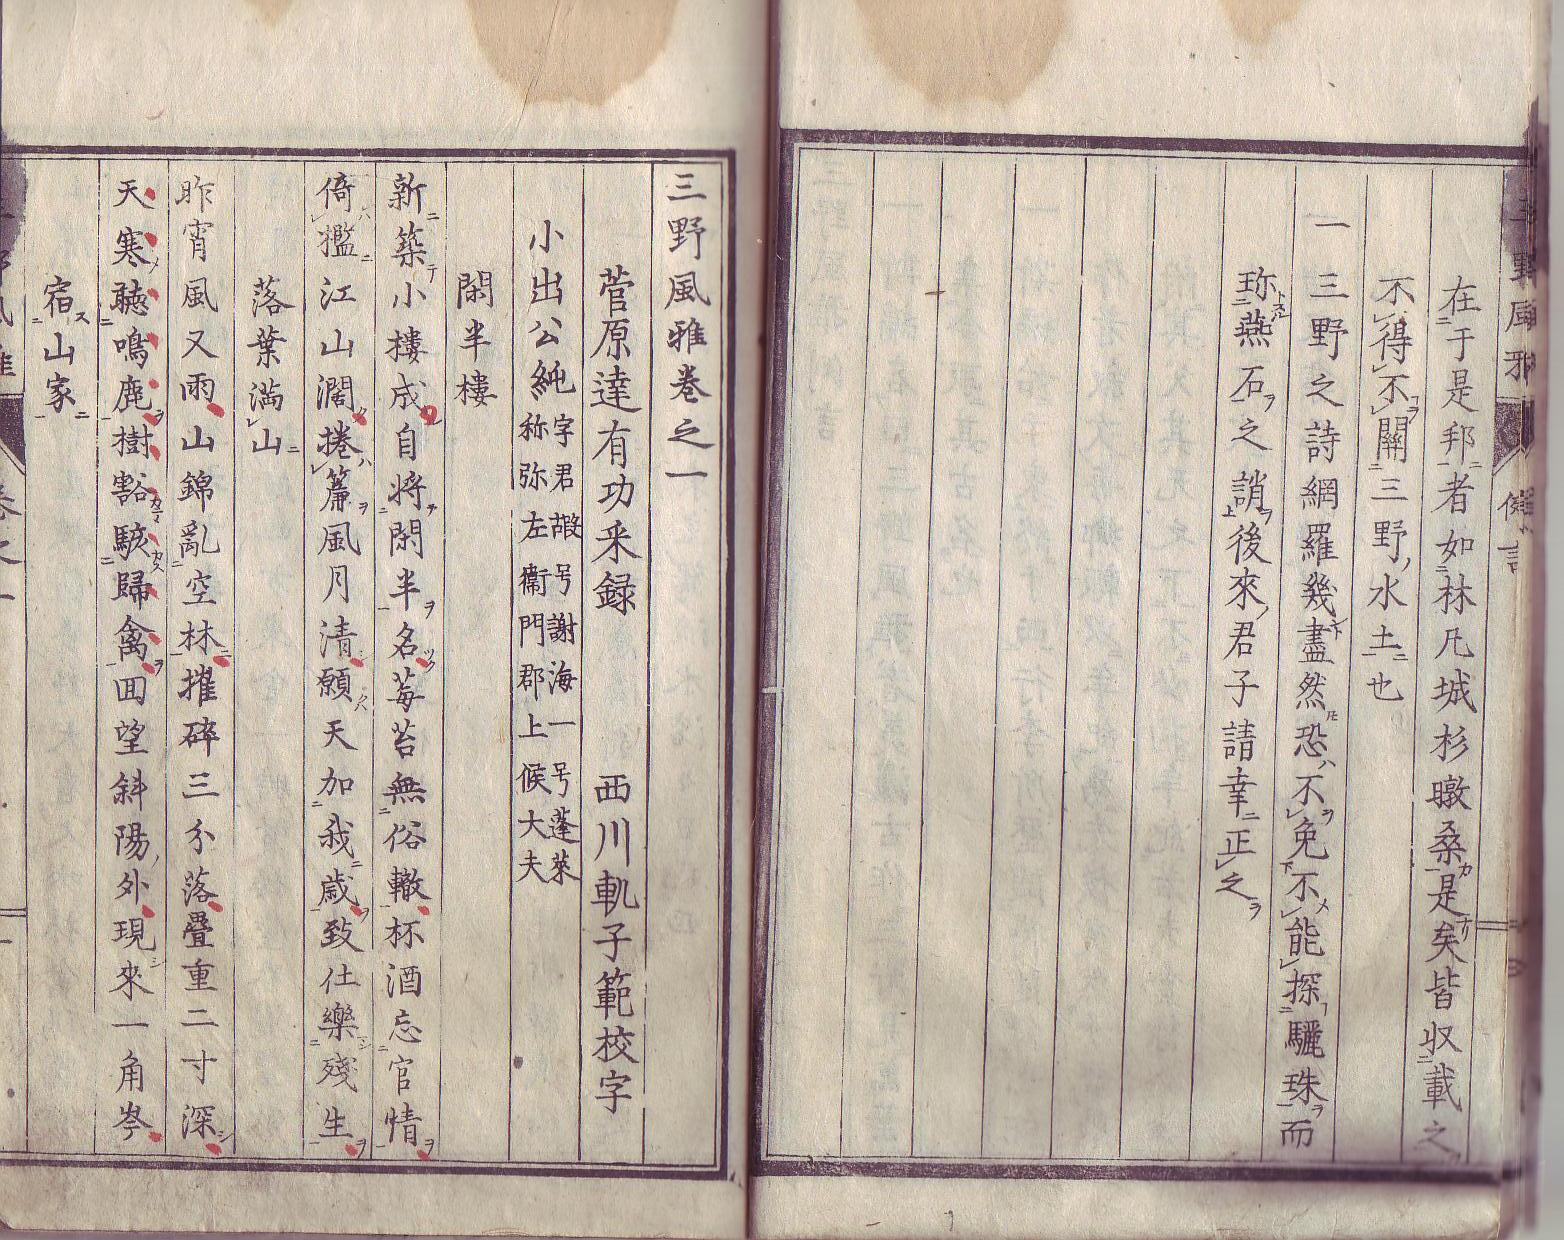 在于是邦者如林凡城杉暾桑是矣皆収載之
不得不關三野水土也
一三野之詩網羅幾盡然恐不免不能探驪珠而
珎燕石之誚後來君子請幸正之
三野風雅卷之一
菅原達有功采録 西川軏子範校字
小出公純 字君嘏号謝海一号蓬萊
称弥左衞門郡上候大夫
閑半樓
新築小樓成自将閑半名莓苔無俗轍杯酒忘官情
倚檻江山濶捲簾風月清願天加我歳致仕樂殘生
落葉滿山
昨宵風又雨山錦亂空林摧碎三分落疊重二寸深
天寒聴鳴鹿樹豁駭歸禽回望斜陽外現來一角岑
宿山家